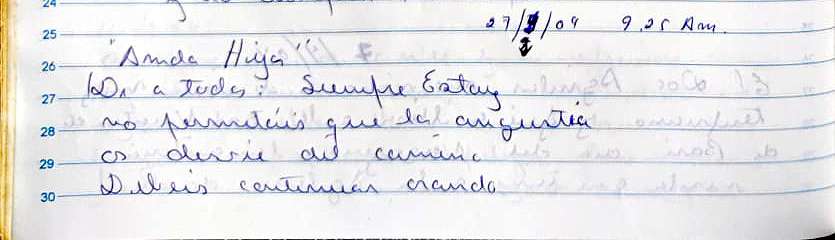 24
27/8/09 9.25 Am.
25
"Amda Hija"
26
Di a todos: Siempre Estoy
27
no permitáis que la angustia
28
os desvie del camino
29
Debeis continuar orando
30